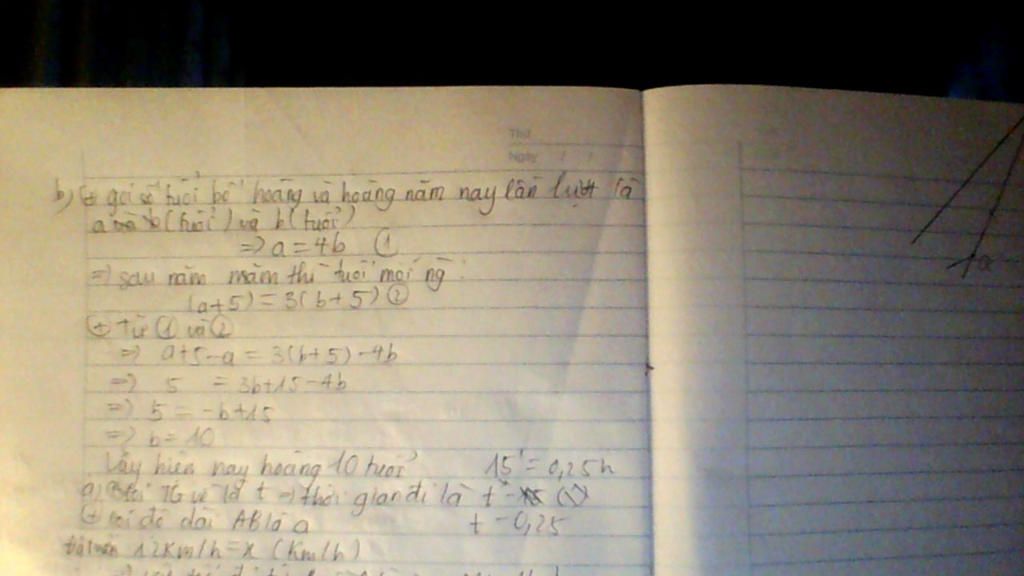 Thứ
Ngày / /
b) gọi số tuổi bố hoàng và hoàng năm nay lần lượt là
a (tuổi) và b (tuổi)
=> a = 4b (1)
=> sau năm năm thì tuổi mọi ng :
(a+5) = 3(b+5) (2)
(+) từ (1) và (2)
=> a+5-a = 3(b+5)-4b
=> 5 = 3b+15-4b
=> 5 = -b+15
=> b = 10
Vậy hiện nay hoàng 10 tuổi
15' = 0,25h
a) TG về là t => thời gian đi là t -
(+) gọi độ dài AB là a
t - 0,25
12km/h = x (km/h)
a